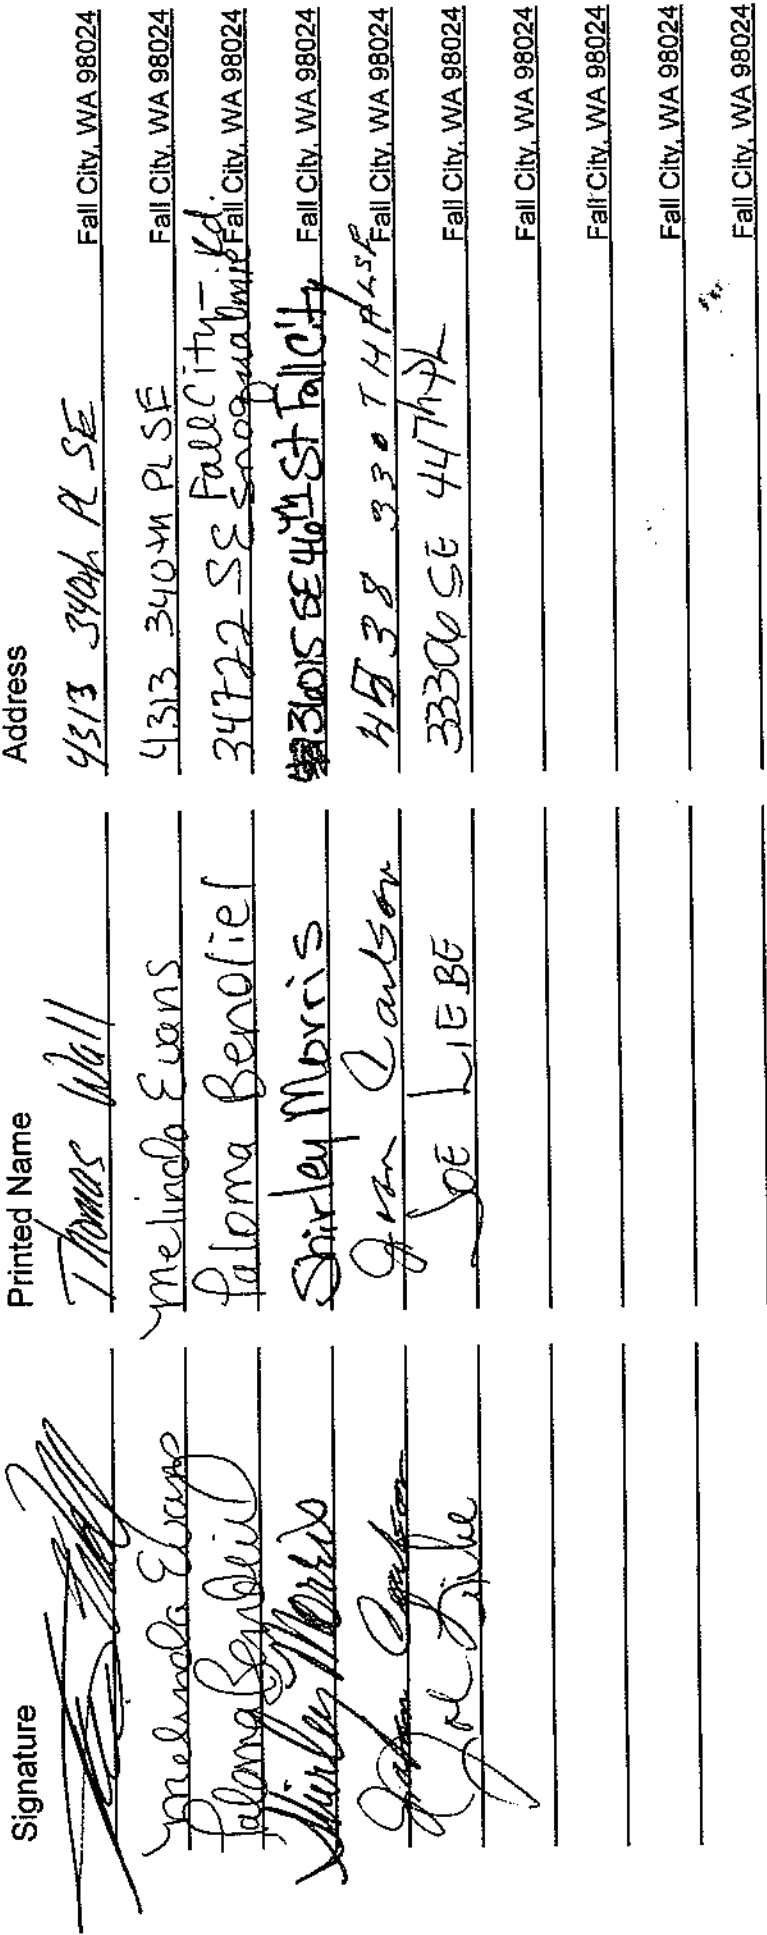 Signature Printed Name Address
Thomas Wall 4313 340th PL SE Fall City, WA 98024
Melinda Evans Melinda Evans 4313 340th PL SE Fall City, WA 98024
Paloma Benoliel Paloma Benoliel 34722 SE Fall City - Snoqualmie Rd. Fall City, WA 98024
Shirley Morris Shirley Morris 36015 SE 46th St Fall City Fall City, WA 98024
Carlson Carlson 4538 330TH PL SE Fall City, WA 98024
Joe Liebe JOE LIEBE 33306 SE 44Th PL Fall City, WA 98024
Fall City, WA 98024
Fall City, WA 98024
Fall City, WA 98024
Fall City, WA 98024